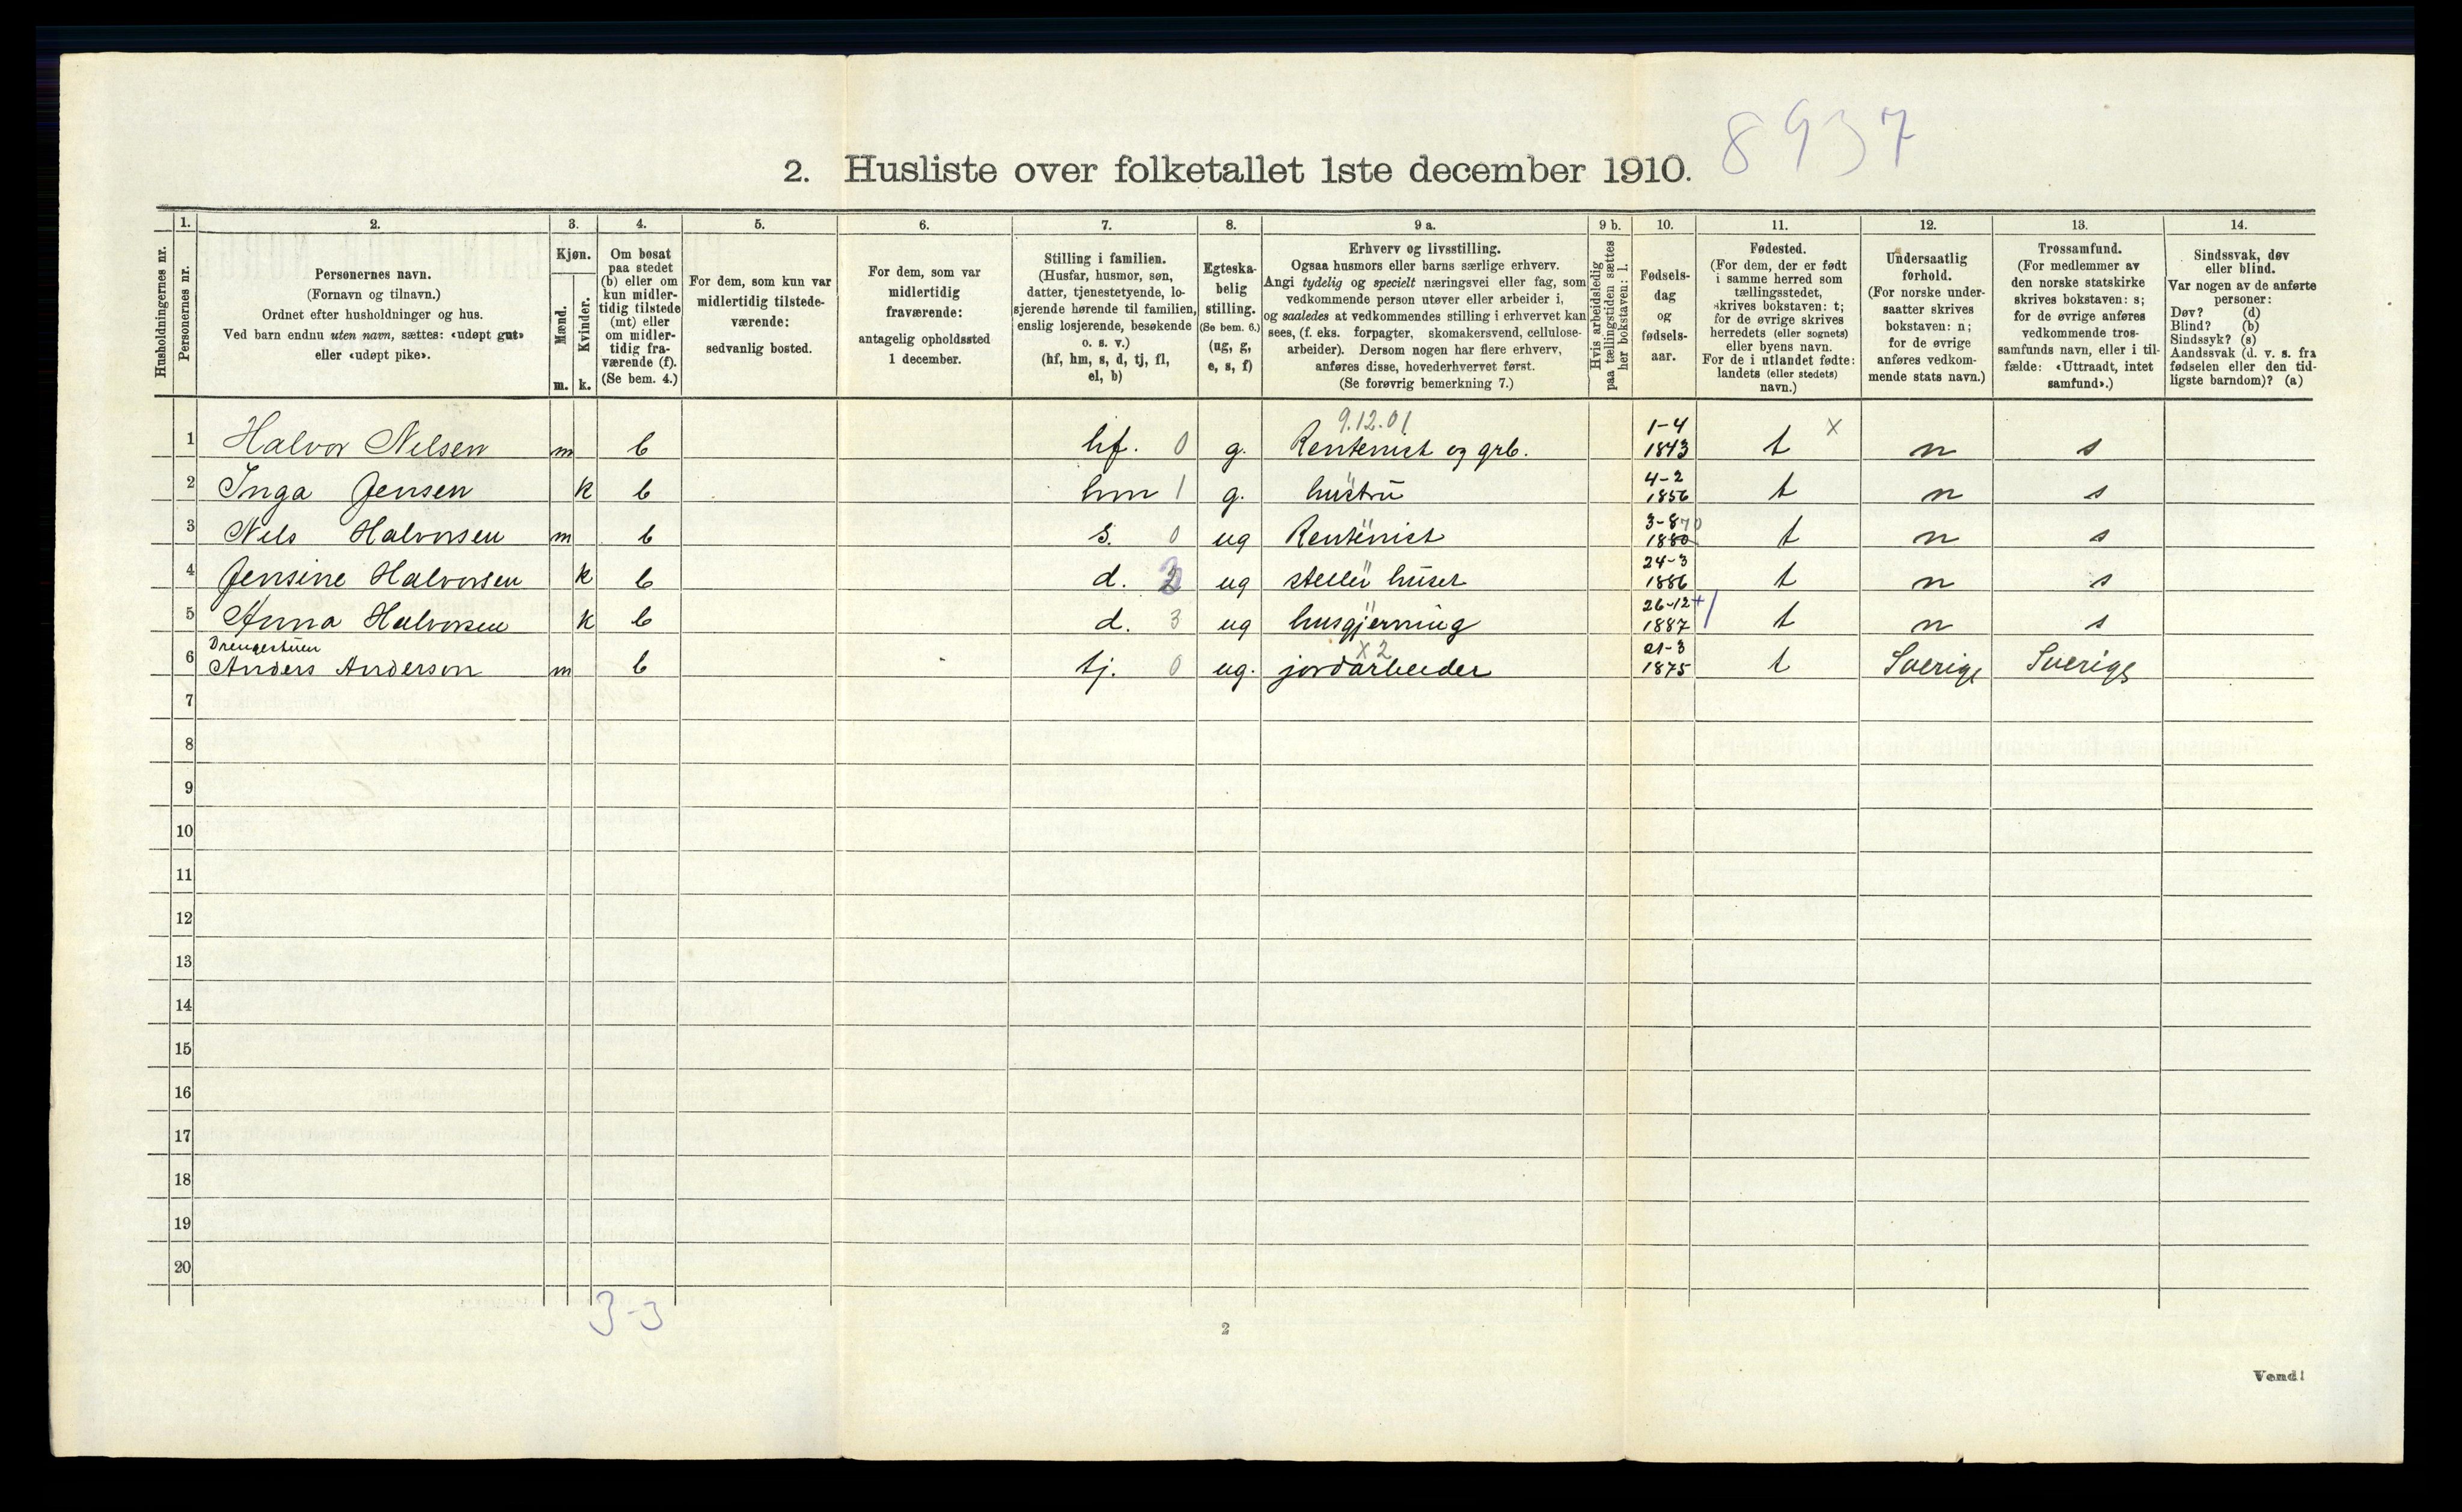 8937
2. Husliste over folketallet 1ste december 1910.
Husholdningernes nr.
1. Personernes nr.
2. Personernes navn.
(Fornavn og tilnavn.)
Ordnet efter husholdninger og hus.
Ved barn endnu uten navn, sættes: «udøpt gut»
eller «udøpt pike».
3. Kjøn.
Mænd. m.
Kvinder. k.
4. Om bosat
paa stedet
(b) eller om
kun midler-
tidig tilstede
(mt) eller
om midler-
tidig fra-
værende (f).
(Se bem. 4.)
5. For dem, som kun var
midlertidig tilstede-
værende:
sedvanlig bosted.
6. For dem, som var
midlertidig
fraværende:
antagelig opholdssted
1 december.
7. Stilling i familien.
(Husfar, husmor, søn,
datter, tjenestetyende, lo-
sjerende hørende til familien,
enslig losjerende, besøkende
o. s. v.)
(hf, hm, s, d, tj, fl,
el, b)
8. Egteska-
belig
stilling.
(Se bem. 6.)
(ug, g,
e, s, f)
9 a. Erhverv og livsstilling.
Ogsaa husmors eller barns særlige erhverv.
Angi tydelig og specielt næringsvei eller fag, som
vedkommende person utøver eller arbeider i,
og saaledes at vedkommendes stilling i erhvervet kan
sees, (f. eks. forpagter, skomakersvend, cellulose-
arbeider). Dersom nogen har flere erhverv,
anføres disse, hovederhvervet først.
(Se forøvrig bemerkning 7.)
9 b. Hvis arbeidsledig
paa tællingstiden sættes
her bokstaven: l.
10. Fødsels-
dag
og
fødsels-
aar.
11. Fødested.
(For dem, der er født
i samme herred som
tællingsstedet,
skrives bokstaven: t;
for de øvrige skrives
herredets (eller sognets)
eller byens navn.
For de i utlandet fødte:
landets (eller stedets)
navn.)
12. Undersaatlig
forhold.
(For norske under-
saatter skrives
bokstaven: n;
for de øvrige
anføres vedkom-
mende stats navn.)
13. Trossamfund.
(For medlemmer av
den norske statskirke
skrives bokstaven: s;
for de øvrige anføres
vedkommende tros-
samfunds navn, eller i til-
fælde: «Uttraadt, intet
samfund».)
14. Sindssvak, døv
eller blind.
Var nogen av de anførte
personer:
Døv? (d)
Blind? (b)
Sindssyk? (s)
Aandssvak (d. v. s. fra
fødselen eller den tid-
ligste barndom)? (a)
9.12.01
1 Halvor Nilsen m b hf. 0 g. Rentenist og grb. 1-4 1843 t x n s
2 Inga Jensen k b hm 1 g. hustru 4-2 1856 t n s
3 Nels Halvorsen m b s. 0 ug Rentenist 3-8 70 1880 t n s
4 Jensine Halvorsen k b d. 2 ug steller huset 24-3 1886 t n s
5 Anna Halvorsen k b d. 3 ug husgjerning 26-12 + 1887 t n s
Drengestuen x 2
6 Anders Anderson m b tj. 0 ug. jordarbeider 21-3 1875 t Sverige Sverige
7
8
9
10
11
12
13
14
15
16
17
18
19
20
3-3
2
Vend!